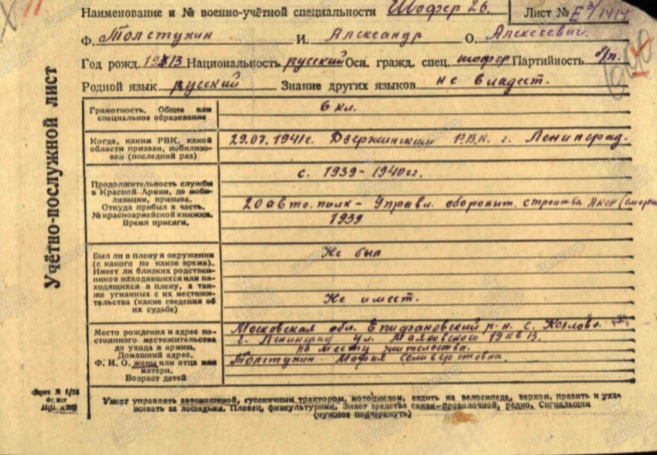 Наименование и № военно-учётной специальности Шофер 26. Лист № Е 3/1414
Ф. Толстухин И. Александр О. Алексеевич
Год рожд. 1913 Национальность русский Осн. гражд. спец. шофер Партийность б/п.
Родной язык русский Знание других языков не владеет.
Учётно-послужной лист
Грамотность. Общее или специальное образование 6 кл.
Когда, каким РВК, какой
области призван, мобилизо-
ван (последний раз)
29.07.1941г. Дзержинским Р.В.К. г. Ленинград.
Продолжительность службы
в Красной Армии, до мобилизации, призыва.
Откуда прибыл в часть.
№ красноармейской книжки.
Время присяги.
с. 1939-1940гг.
20 авто. полк - Управл. оборонит. строитва
1939
Был ли в плену и окружении
(с какого по какое время).
Имеет ли близких родствен-
ников находившихся или на-
ходящихся в плену, а так-
же угнанных с их местожи-
тельства (какие сведения об
их судьбе)
Не был
Не имеет.
Место рождения и адрес по-
стоянного местожительства
до ухода в армию.
Домашний адрес.
Ф. И. О. жены или отца или
матери.
Возраст детей
Московская обл. р-н. с. Козлово.
г. Ленинград ул. Маяковского 19 кв 13.
по месту жительства.
Толстухин - Мария
Форм № 6/УЗ
Умеет управлять автомашиной, гусеничным трактором, мотоциклом, ездить на велосипеде, верхом, править и уха-
живать за лошадьми. Пловец, физкультурник. Знает средства связи-проволочной, радио. Сигнальщик
(нужное подчеркнуть)